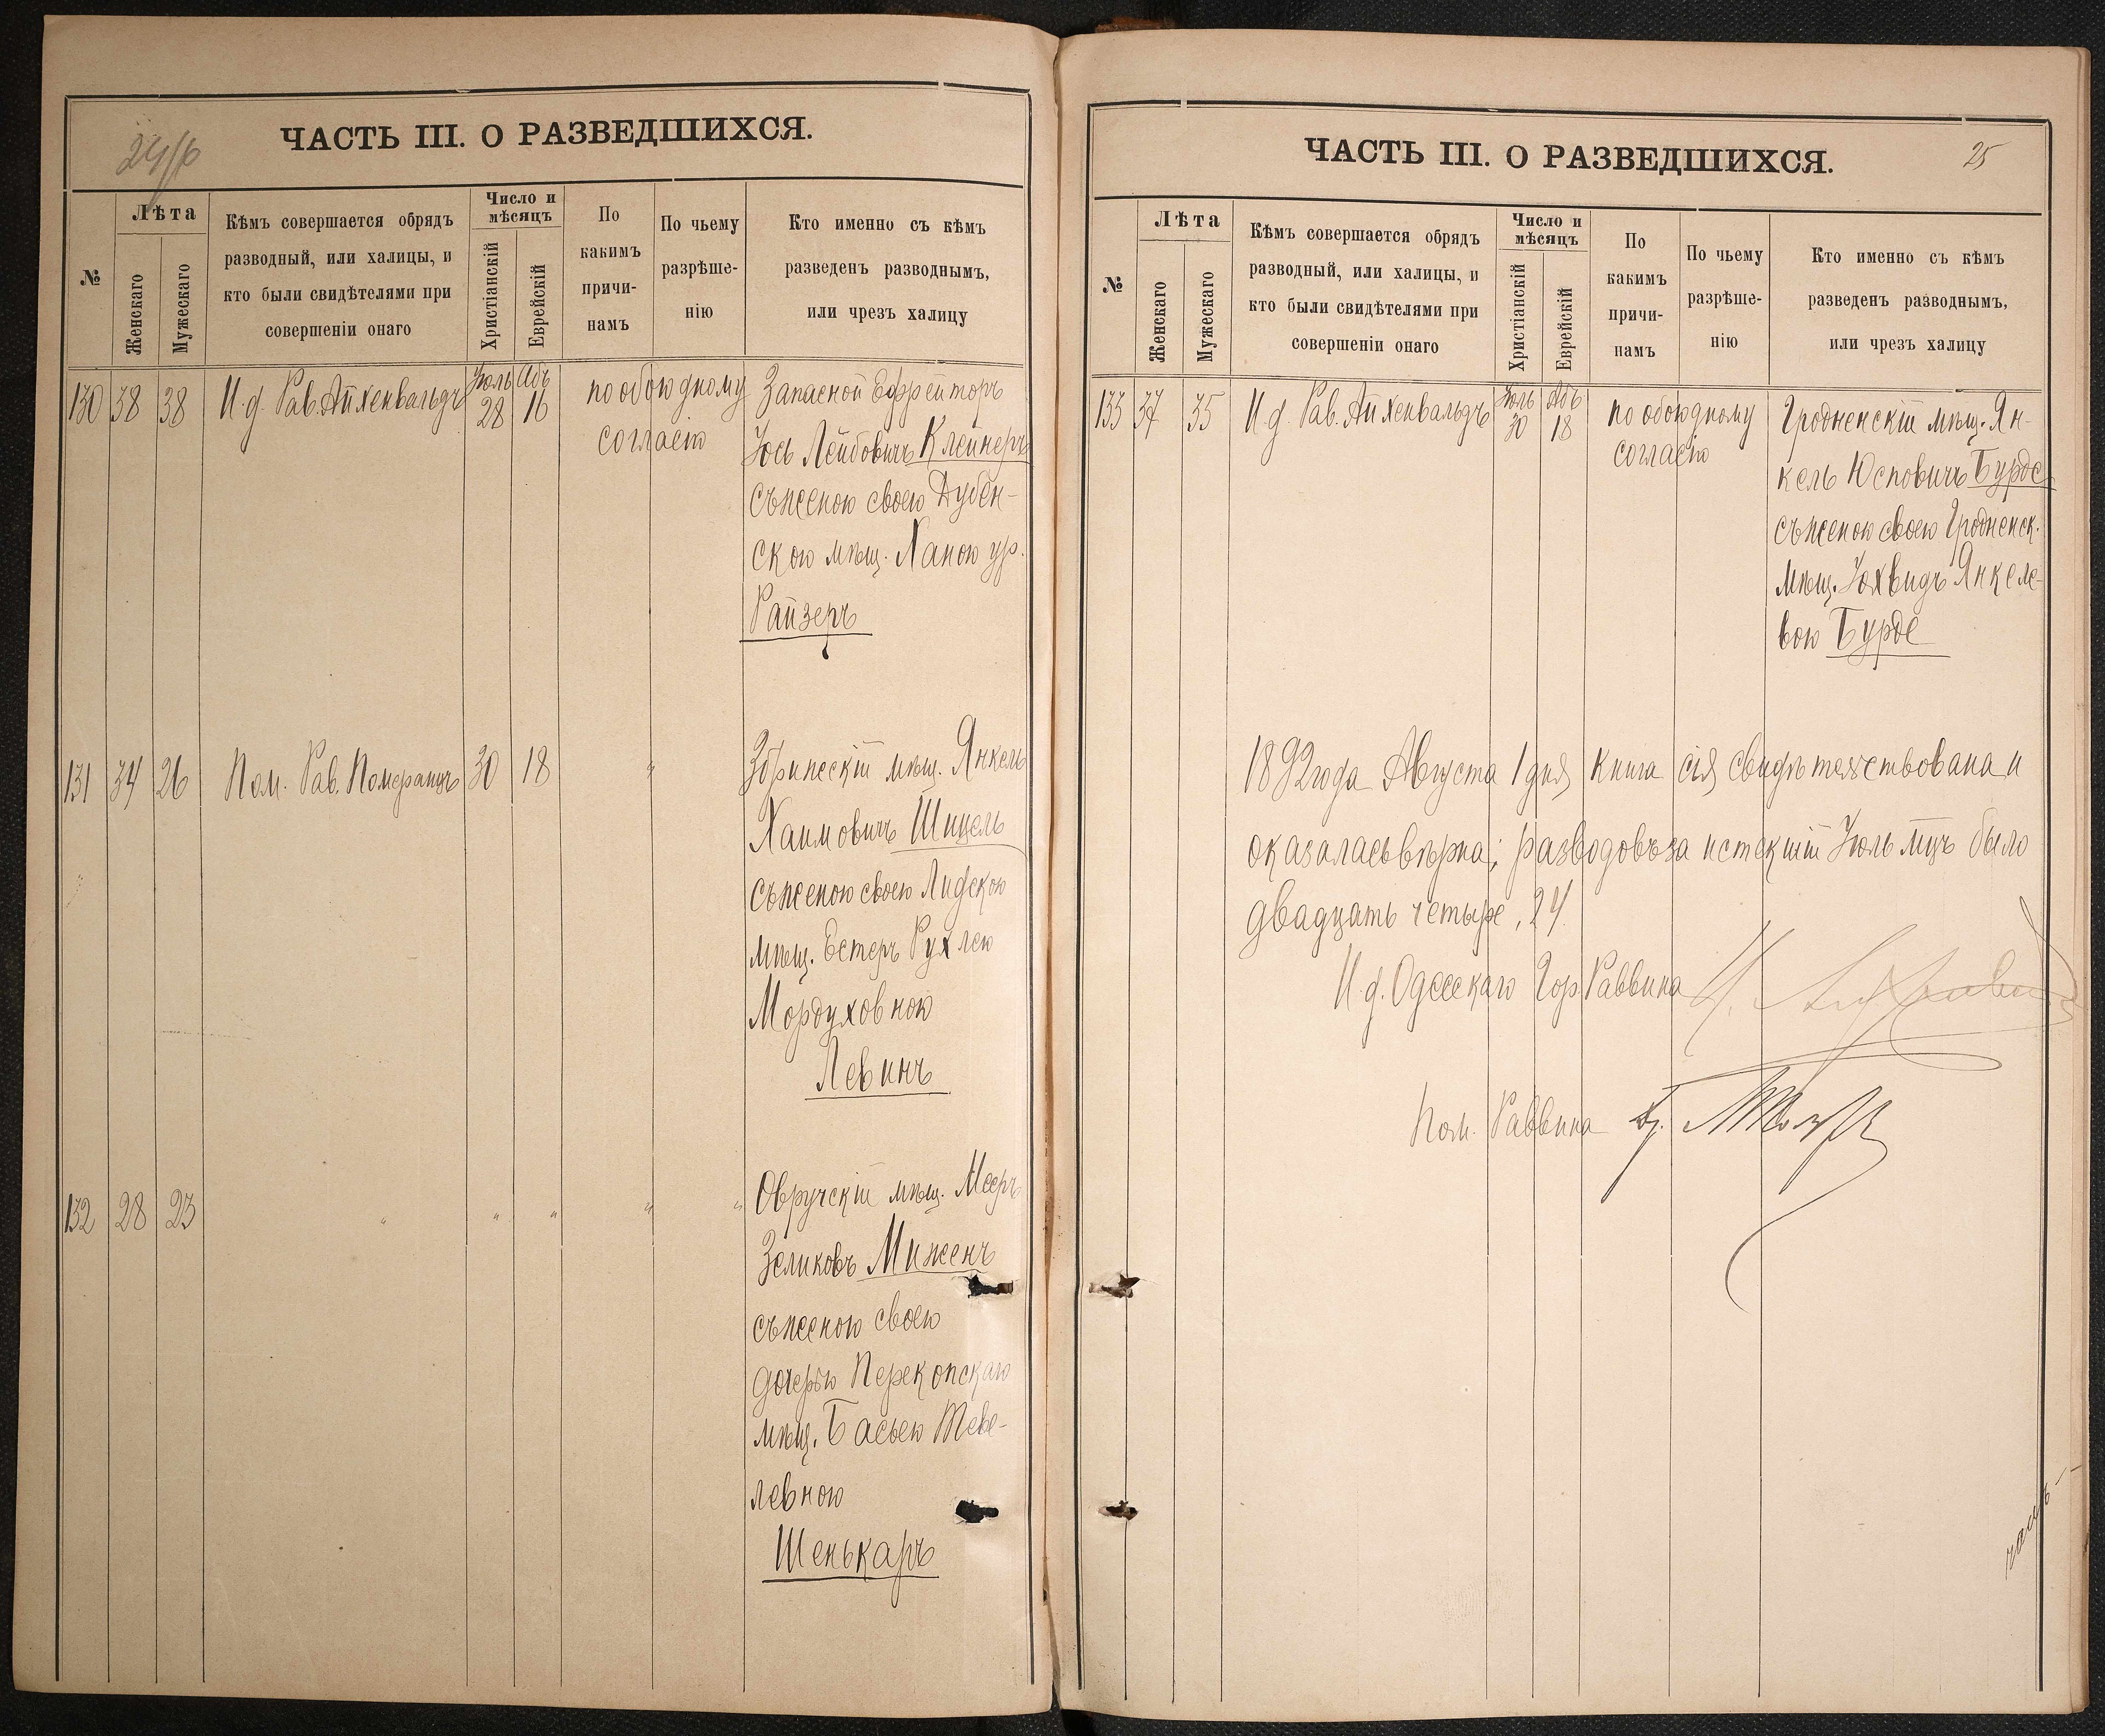 24/б
ЧАСТЬ III. О РАЗВЕДШИХСЯ.
№
Лѣта
Женскаго
Мужескаго
Кѣмъ совершается обрядъ
разводный, или халицы, и
кто были свидѣтелями при
совершеніи онаго
Число и
мѣсяцъ
Христіанскій
Еврейскій
По
какимъ
причи-
намъ
По чьему
разрѣше-
нію
Кто именно съ кѣмъ
разведенъ разводнымъ,
или чрезъ халицу
130 38 38 И.д. Рав. Айхенвальдъ Іюль 28 Абъ 16 по обоюдному
согласію
Запасной Ефрейторъ
Іось Лейбовичъ Клейнеръ
съ женою своею Дубен-
скою мѣщ. Ханою ур.
Райзеръ
131 34 26 Пом. Рав. Померанцъ 30 18 "
мѣщ. Янкель
Хаимовичъ Шицель
съ женою своею Лидскою
мѣщ. Естеръ Рухлею
Мордуховною
Левинъ
132 28 23 " " " " "
Овручскій мѣщ. Мееръ
Зеликовъ Миженъ
съ женою своею
дочерью Перекопскаго
мѣщ. Басьею Теве-
левною
Шенькаръ
ЧАСТЬ III. О РАЗВЕДШИХСЯ.
25
№
Лѣта
Женскаго
Мужескаго
Кѣмъ совершается обрядъ
разводный, или халицы, и
кто были свидѣтелями при
совершеніи онаго
Число и
мѣсяцъ
Христіанскій
Еврейскій
По
какимъ
причи-
намъ
По чьему
разрѣше-
нію
Кто именно съ кѣмъ
разведенъ разводнымъ,
или чрезъ халицу
133 37 35 И.д. Рав. Айхенвальдъ Іюль 30 Абъ 18 по обоюдному
согласію
Гродненскій мѣщ. Ян-
кель Юсповичъ Бурде
съ женою своею Гродненск.
мѣщ. Іохвидъ Янкеле-
вою Бурде
1892 года Августа 1 дня книга сія свидѣтельствована и
оказалась вѣрна; разводовъ за истекшій Іюль мцъ было
двадцать четыре, 24.
И.д. Одесскаго Гор. Раввина
Пом. Раввина